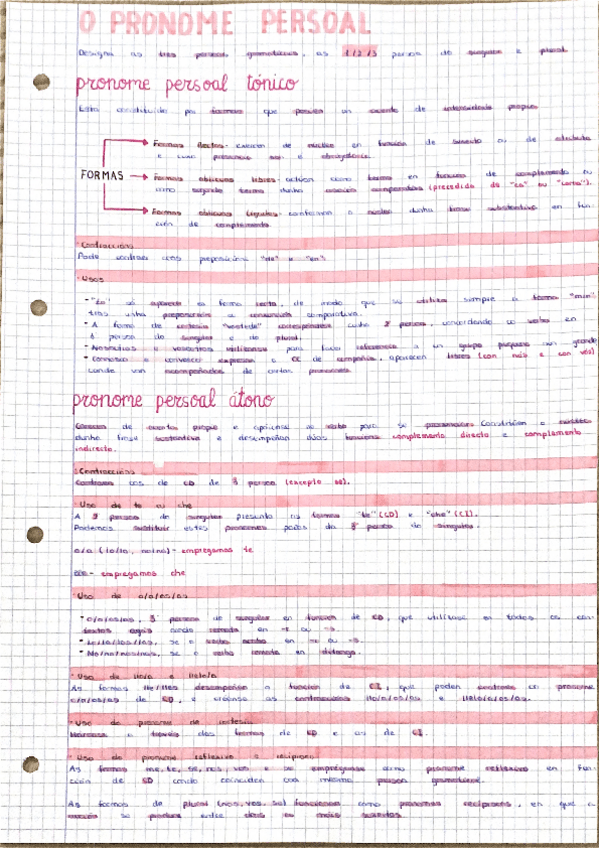 O PRONOME PERSOAL
Designa as tres persoas gramaticais, as 1/2/3 persoa do singular e plural.
pronome persoal tónico
Está constituído por formas que posúen un acento de intensidade propio.
Formas Rectas- exercen de núcleo en función de suxeito ou de atributo
e cuxa presenza non é obrigatoria.
FORMAS
Formas oblicuas libres- actúan como termo en función de complemento ou
como segundo termo dunha comparativa (precedido de "ca" ou "coma").
Formas oblicuas ligadas- conforman o núcleo dunha frase substantiva en fun-
ción de complemento.
· Contraccións
Pode contraer coas preposicións "de" e "en".
· Usos
- "Eu" só aparece na forma recta, de modo que se utiliza sempre a forma "min"
tras unha preposición e comparativa.
- A forma de cortesía "vostede" correspóndese cunha 2ª persoa, concordando co verbo en
3ª persoa do singular e do plural.
- Nosoutros e vosoutros para facer referencia a un grupo pequeno nun grande
- Connosco e convosco expresan o CC de compañía, aparecen libres (con nós e con vós)
cando van acompañados de
pronome persoal átono
Carecen de acento propio e apóianse no verbo para se pronunciar. Constitúen o núcleo
dunha frase substantiva e desempeñan dúas funcións complemento directo e complemento
indirecto.
· Contraccións
cos de CD de 3ª persoa (excepto se).
· Uso de te ou che
A 2ª persoa do singular presenta as formas "te" (CD) e "che" (CI).
Podemos substituír estes pronomes polos da 3ª persoa do singular.
o/a (lo/la, no/na)- empregamos te
lle- empregamos che
· Uso de o/a/os/as
- o/a/os/as, 3ª persoa do singular en función de CD, que utilízase en todos os con-
textos agás cando remata en -r ou -s.
- Lo/la/los/las, se o verbo acaba en -r ou -s.
- No/na/nos/nas, se o verbo remata en ditongo.
· Uso de lle/s e
As formas lle/lles desempeñan a función de CI, que poden contraer co pronome
o/a/os/as de CD, e créanse as contraccións llo/a/os/as e llelo/a/os/as.
· Uso do pronome de cortesía
Márcase a través das formas de CD e as de CI.
· Uso do pronome reflexivo e recíproco
As formas me, te, se, nos, vos e se empréganse como pronome reflexivo en fun-
ción de CD cando coinciden coa mesma persoa gramatical.
As formas de plural (nos, vos, se) funcionan como pronomes recíprocos, en que a
acción se produce entre dous ou máis suxeitos.